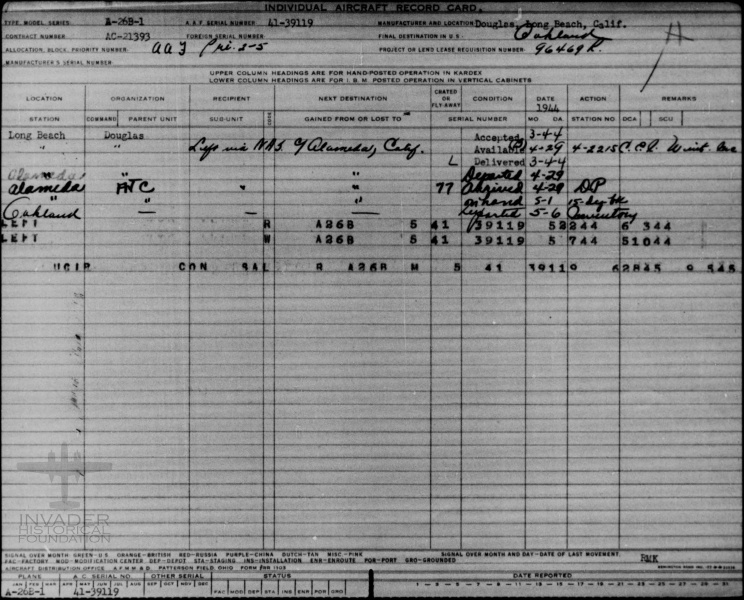 INDIVIDUAL AIRCRAFT RECORD CARD.
TYPE, MODEL, SERIES A-26B-1 A.A.F. SERIAL NUMBER 41-39119 MANUFACTURER AND LOCATION Douglas, Long Beach, Calif.
CONTRACT NUMBER AC-21393 FOREIGN SERIAL NUMBER FINAL DESTINATION IN U.S. Oakland
ALLOCATION, BLOCK, PRIORITY NUMBER AAF Pri. 2-5 PROJECT OR LEND LEASE REQUISITION NUMBER 96469R.
MANUFACTURER'S SERIAL NUMBER
UPPER COLUMN HEADINGS ARE FOR HAND-POSTED OPERATION IN KARDEX
LOWER COLUMN HEADINGS ARE FOR I.B.M. POSTED OPERATION IN VERTICAL CABINETS
LOCATION ORGANIZATION RECIPIENT NEXT DESTINATION CRATED OR FLY-AWAY CONDITION DATE 1944 ACTION REMARKS
STATION COMMAND PARENT UNIT SUB-UNIT CODE GAINED FROM OR LOST TO SERIAL NUMBER MO DA. STATION NO. DCA SCU
Long Beach Douglas Accepted 3-4-4
" " Lys via NAS Alameda, Calif. Available 4-29 4-2215
L Delivered 3-4-4
Alameda " " Departed 4-29
Alameda FTC " " 77 Arrived 4-29 DP
" " " on hand 5-1
Oakland — — — Departed 5-6 Inventory
LEFT R A26B 5 41 39119 52244 6 344
LEFT W A26B 5 41 39119 5 744 51044
UCIR CON SAL R A26B M 5 41 39119 62845 9 545
INVADER
HISTORICAL
FOUNDATION
SIGNAL OVER MONTH GREEN-U.S. ORANGE-BRITISH RED-RUSSIA PURPLE-CHINA DUTCH-TAN MISC.-PINK SIGNAL OVER MONTH AND DAY-DATE OF LAST MOVEMENT.
FAC-FACTORY MOD-MODIFICATION CENTER DEP-DEPOT STA-STAGING INS-INSTALLATION ENR-ENROUTE POR-PORT GRO-GROUNDED RMK
AIRCRAFT DISTRIBUTION OFFICE A.F.M.M.&D. PATTERSON FIELD, OHIO
PLANE A.C. SERIAL NO. OTHER SERIAL STATUS DATE REPORTED
JAN FEB MAR APR MAY JUN JUL AUG SEP OCT NOV DEC FAC MOD DEP STA INS ENR POR GRO 1 - 3 - 5 - 7 - 9 - 11 - 13 - 15 - 17 - 19 - 21 - 23 - 25 - 27 - 29 - 31
A-26B-1 41-39119